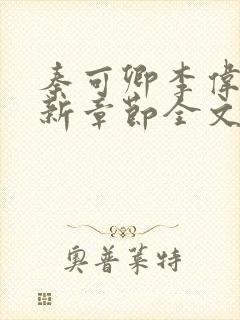 秦可卿李偉
新章節全文
奧普萊特